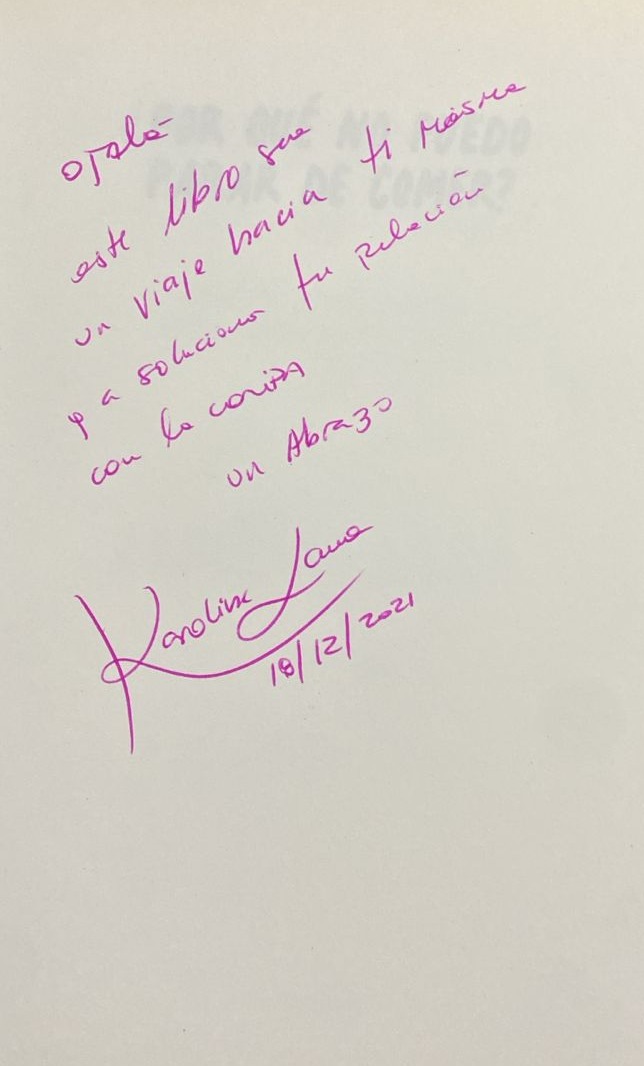 ojalá
este libro sea
un viaje hacia ti misma
y a solucionar tu relación
con la comida
un Abrazo
Karolina Lama
18/12/2021
¿POR QUÉ NO PUEDO
PARAR DE COMER?